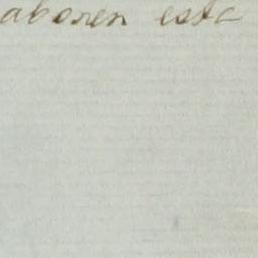 aboren esta